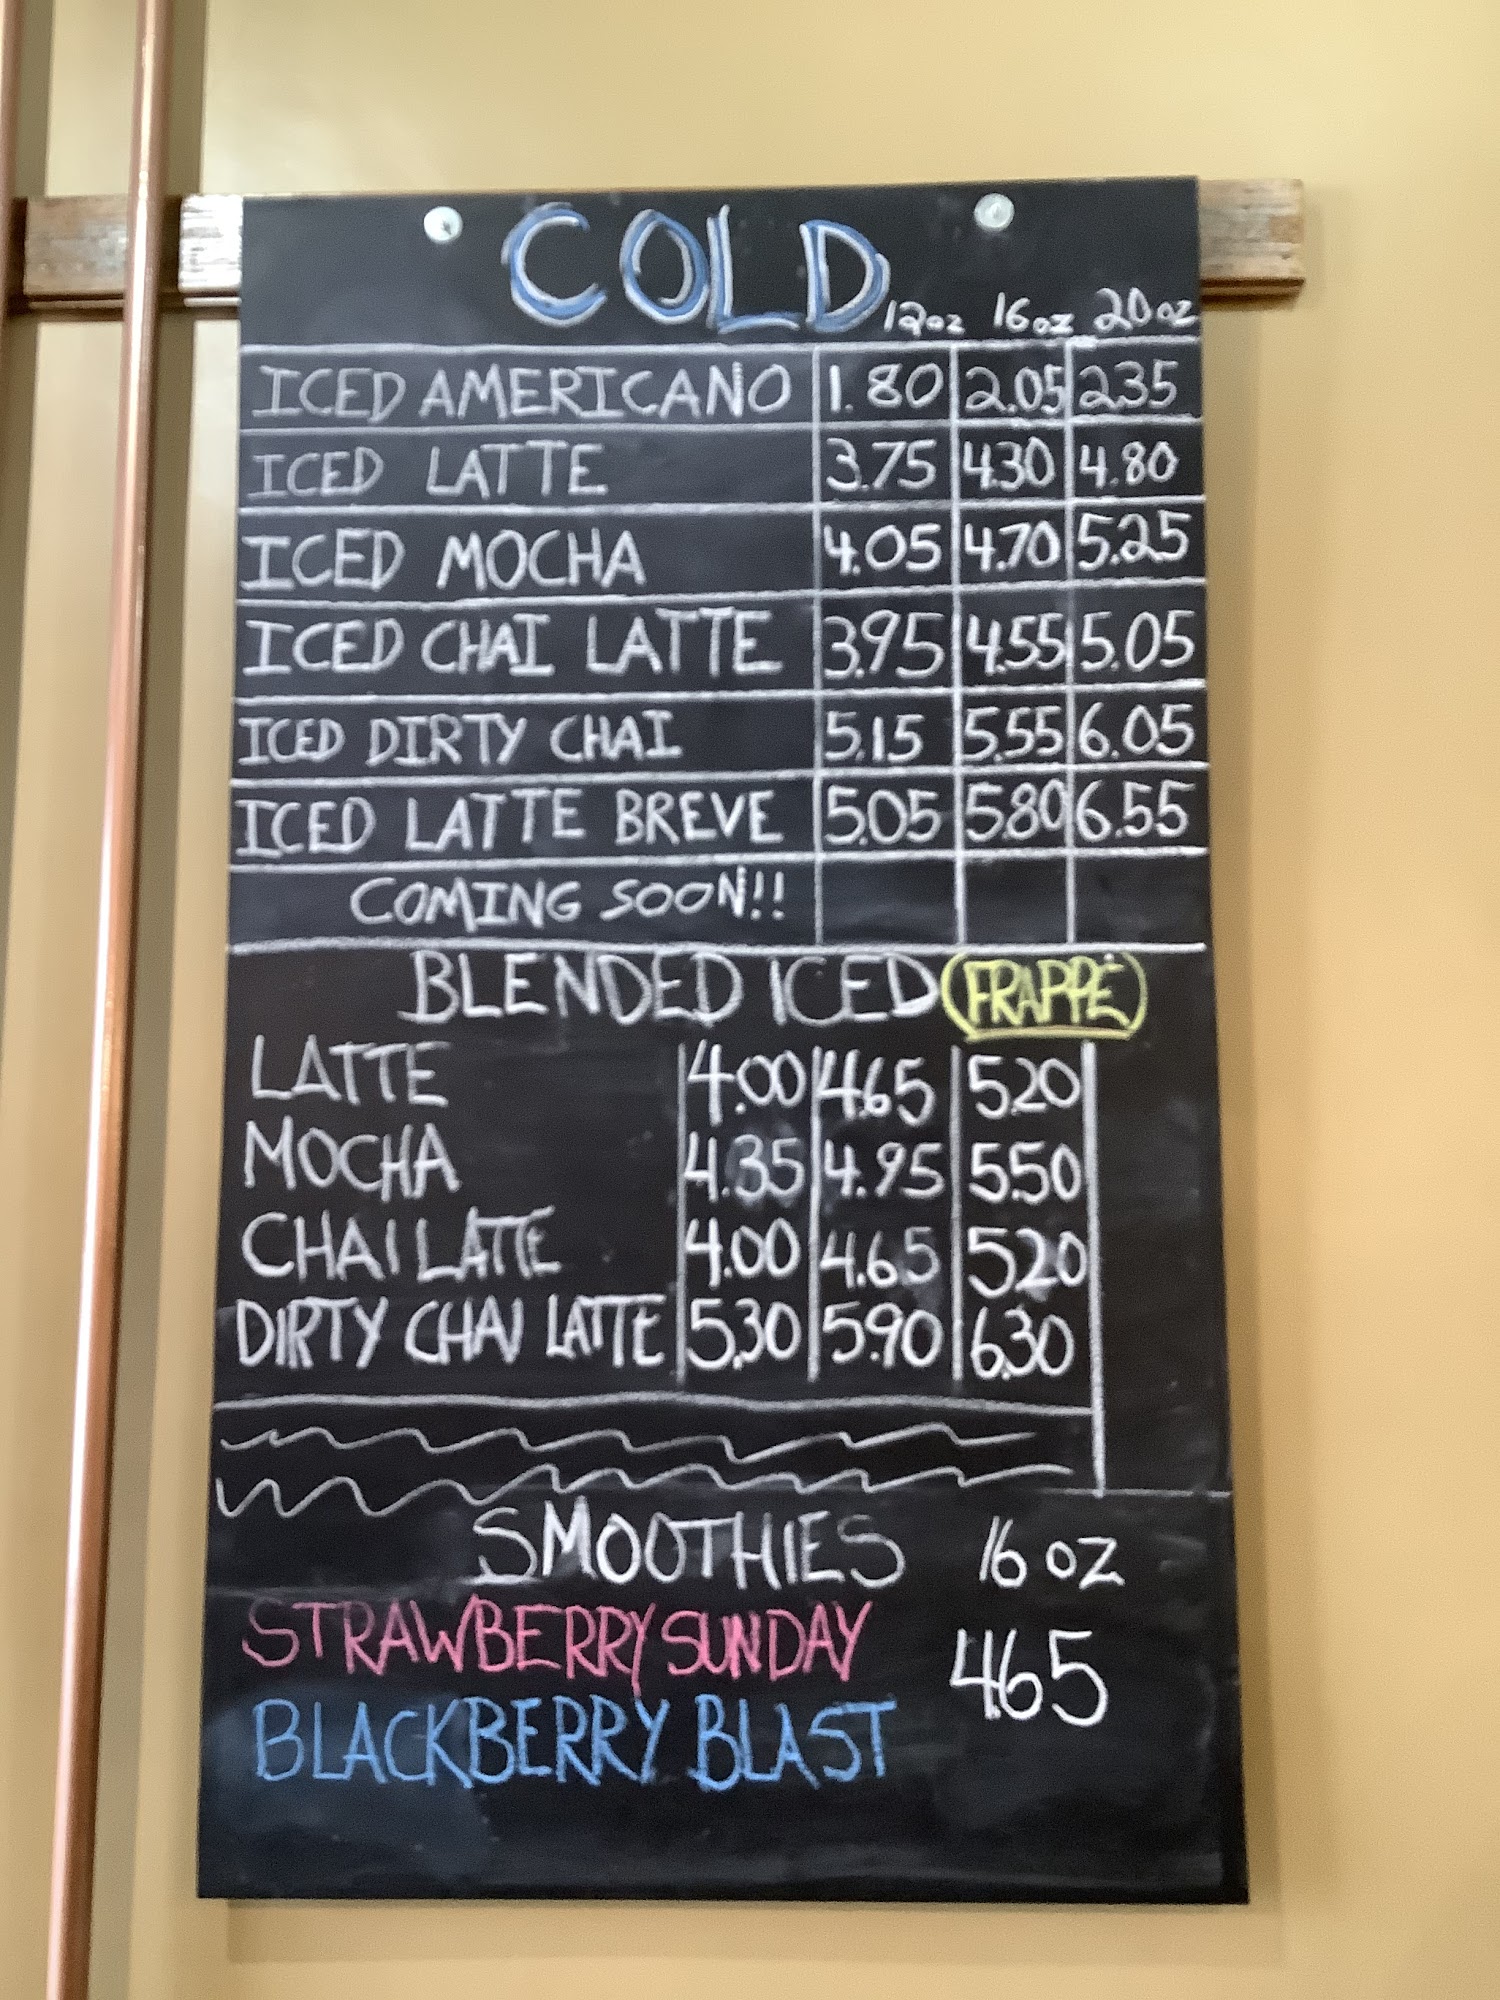 COLD 12oz 16oz 20oz
ICED AMERICANO 1.80 2.05 2.35
ICED LATTE 3.75 4.30 4.80
ICED MOCHA 4.05 4.70 5.25
ICED CHAI LATTE 3.95 4.55 5.05
ICED DIRTY CHAI 5.15 5.55 6.05
ICED LATTE BREVE 5.05 5.80 6.55
COMING SOON!!
BLENDED ICED (FRAPPÉ)
LATTE 4.00 4.65 5.20
MOCHA 4.35 4.95 5.50
CHAI LATTE 4.00 4.65 5.20
DIRTY CHAI LATTE 5.30 5.90 6.30
SMOOTHIES 16 oz
STRAWBERRY SUNDAY 4.65
BLACKBERRY BLAST